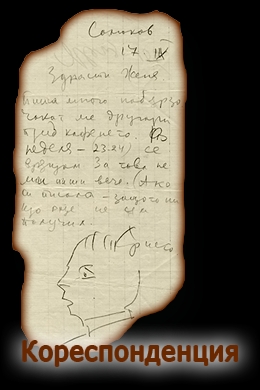 Соликов
17. IX
Здрасти Женя
Пиша много набързо
Чакат ме другари
пред кафенето. В
неделя – 23.IX) се
За това не
ми пиши вече. (Ако
си писала – защото ни
що още не съм
получил.
Христо
Кореспонденция